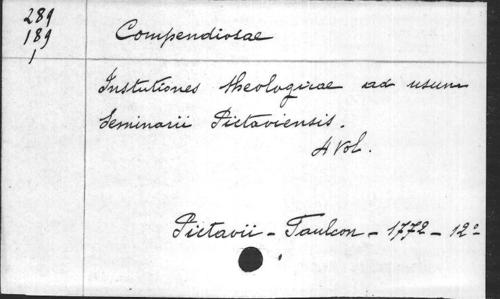 289
189
1
Compendiosae
Instutiones theologicae ad usum
Seminarii Pictaviensis.
4 Vol.
Pictavii - Faulcon - 1772 - 12º